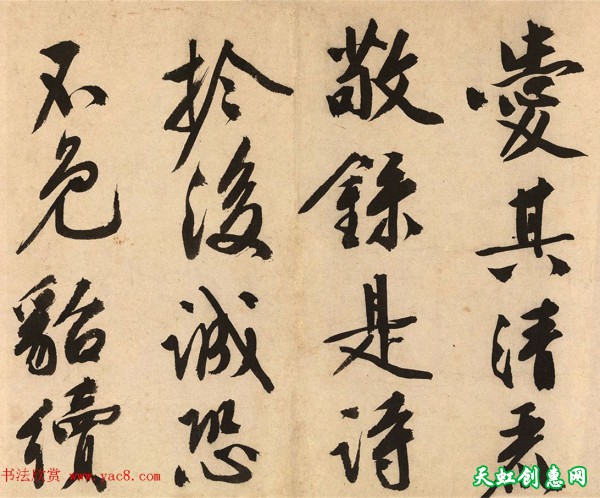 愛其清
敬錄是詩
於後誠恐
不免貂續
书法欣赏 www.yac8.com
天虹创惠网